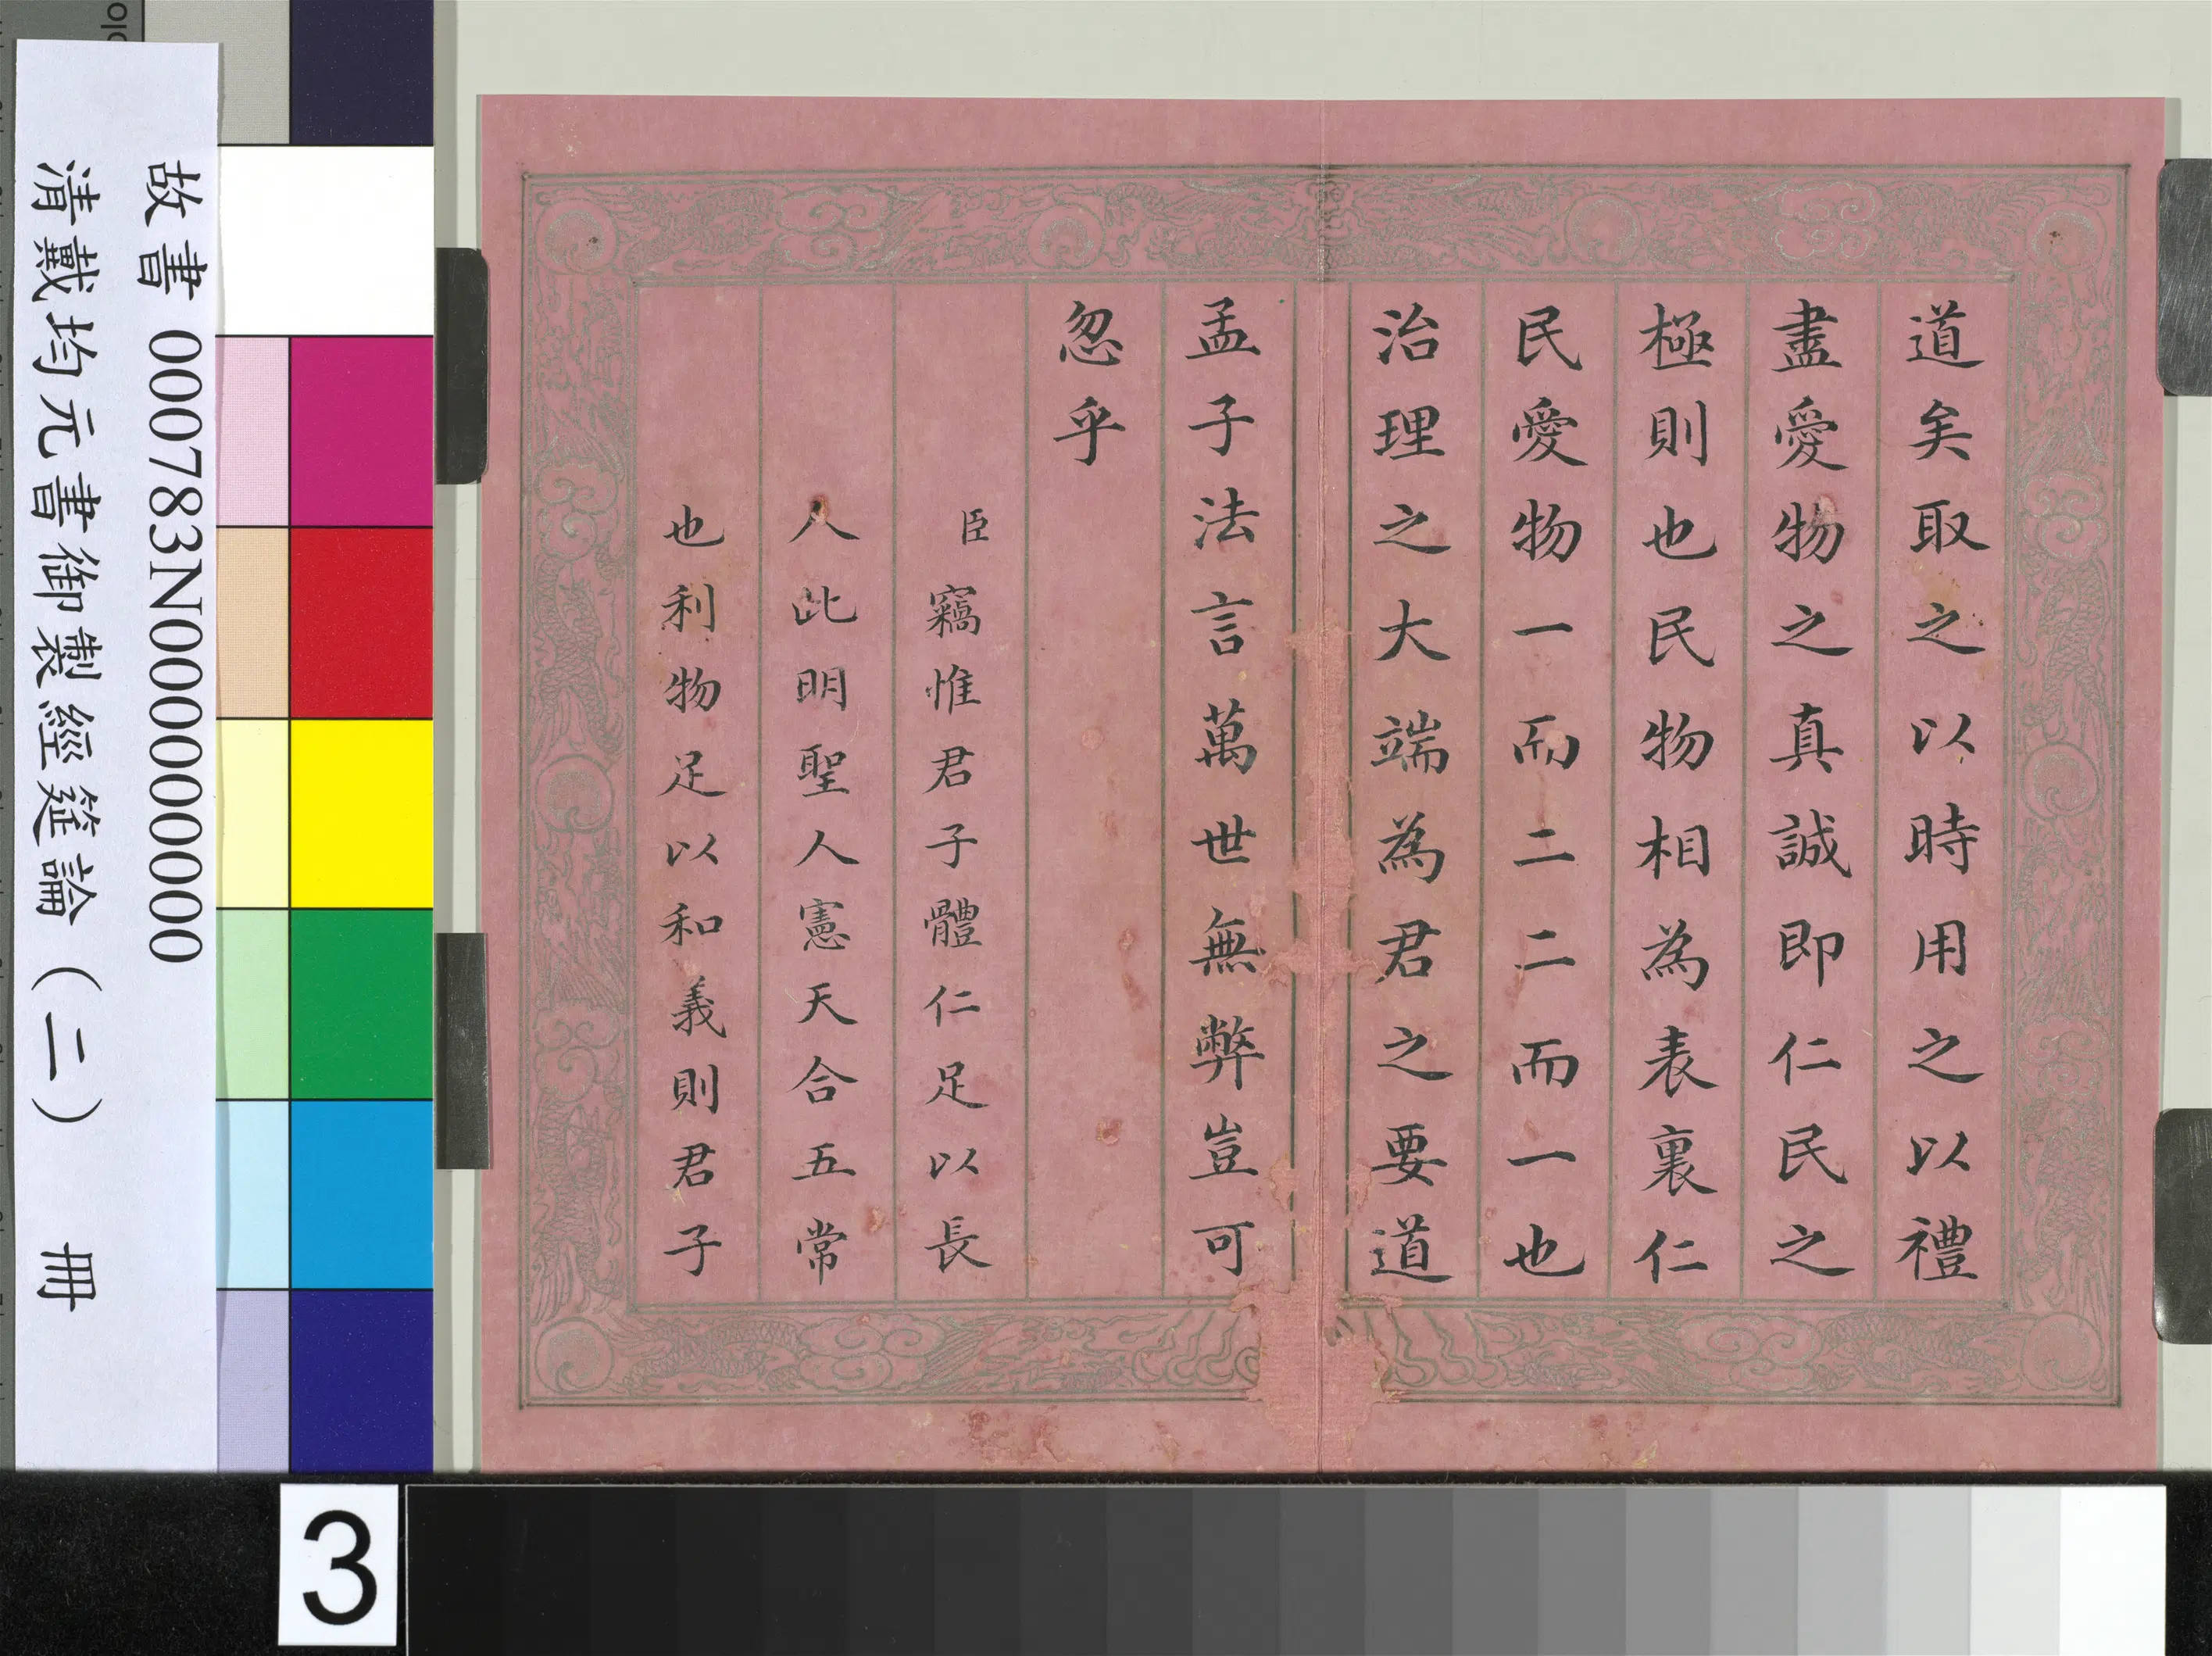 道矣取之以時用之以禮
盡愛物之真誠即仁民之
極則也民物相為表裏仁
民愛物一而二二而一也
治理之大端為君之要道
孟子法言萬世無弊豈可
忽乎
臣竊惟君子體仁足以長
人此明聖人憲天合五常
也利物足以和義則君子
故書 000783N000000000
清戴均元書御製經筵論(二) 冊
3